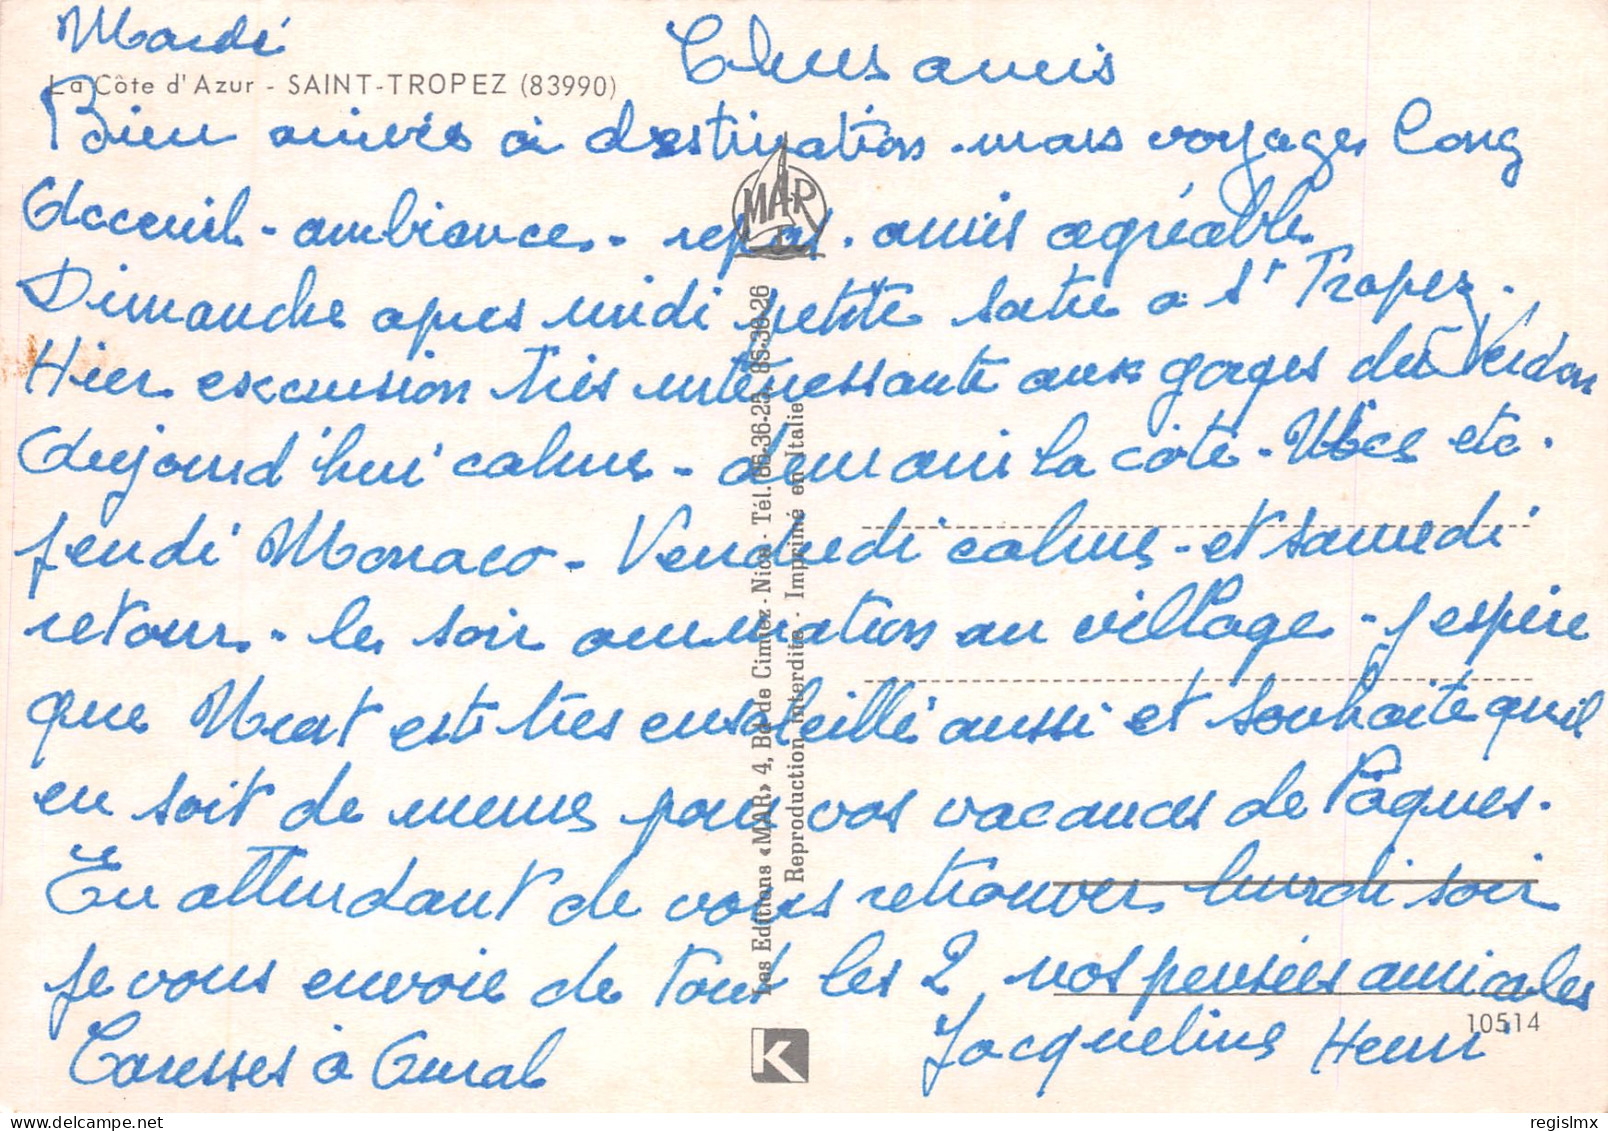 Mardi
Chers amis
La Côte d'Azur - SAINT-TROPEZ (83990)
Bien arrivés à destination. mais voyages long
Acceuil - ambiance - repas. amis agréable.
Dimanche apres midi petite sortie a St Tropez.
Hier excursion très intéressante aux gorges du Verdon
Aujourd'hui calme - demain la côte - Nice etc.
jeudi Monaco - Vendredi calme - et samedi
retour - le soir animation au village - j espère
que est très ensoleillé aussi et souhaite quil
en soit de meme pour vos vacances de Pâques.
En attendant de vous retrouver lundi soir
je vous envoie de tout les 2 nos pensées amicales
Caresses à
Jacqueline Henri
MAR
Les Editions «MAR» 4, Bd de Cimiez - Nice - Tél. 86-36-25, 86-30-26
Reproduction interdite - Imprimé en Italie
K
10514
delcampe.net
regislmx